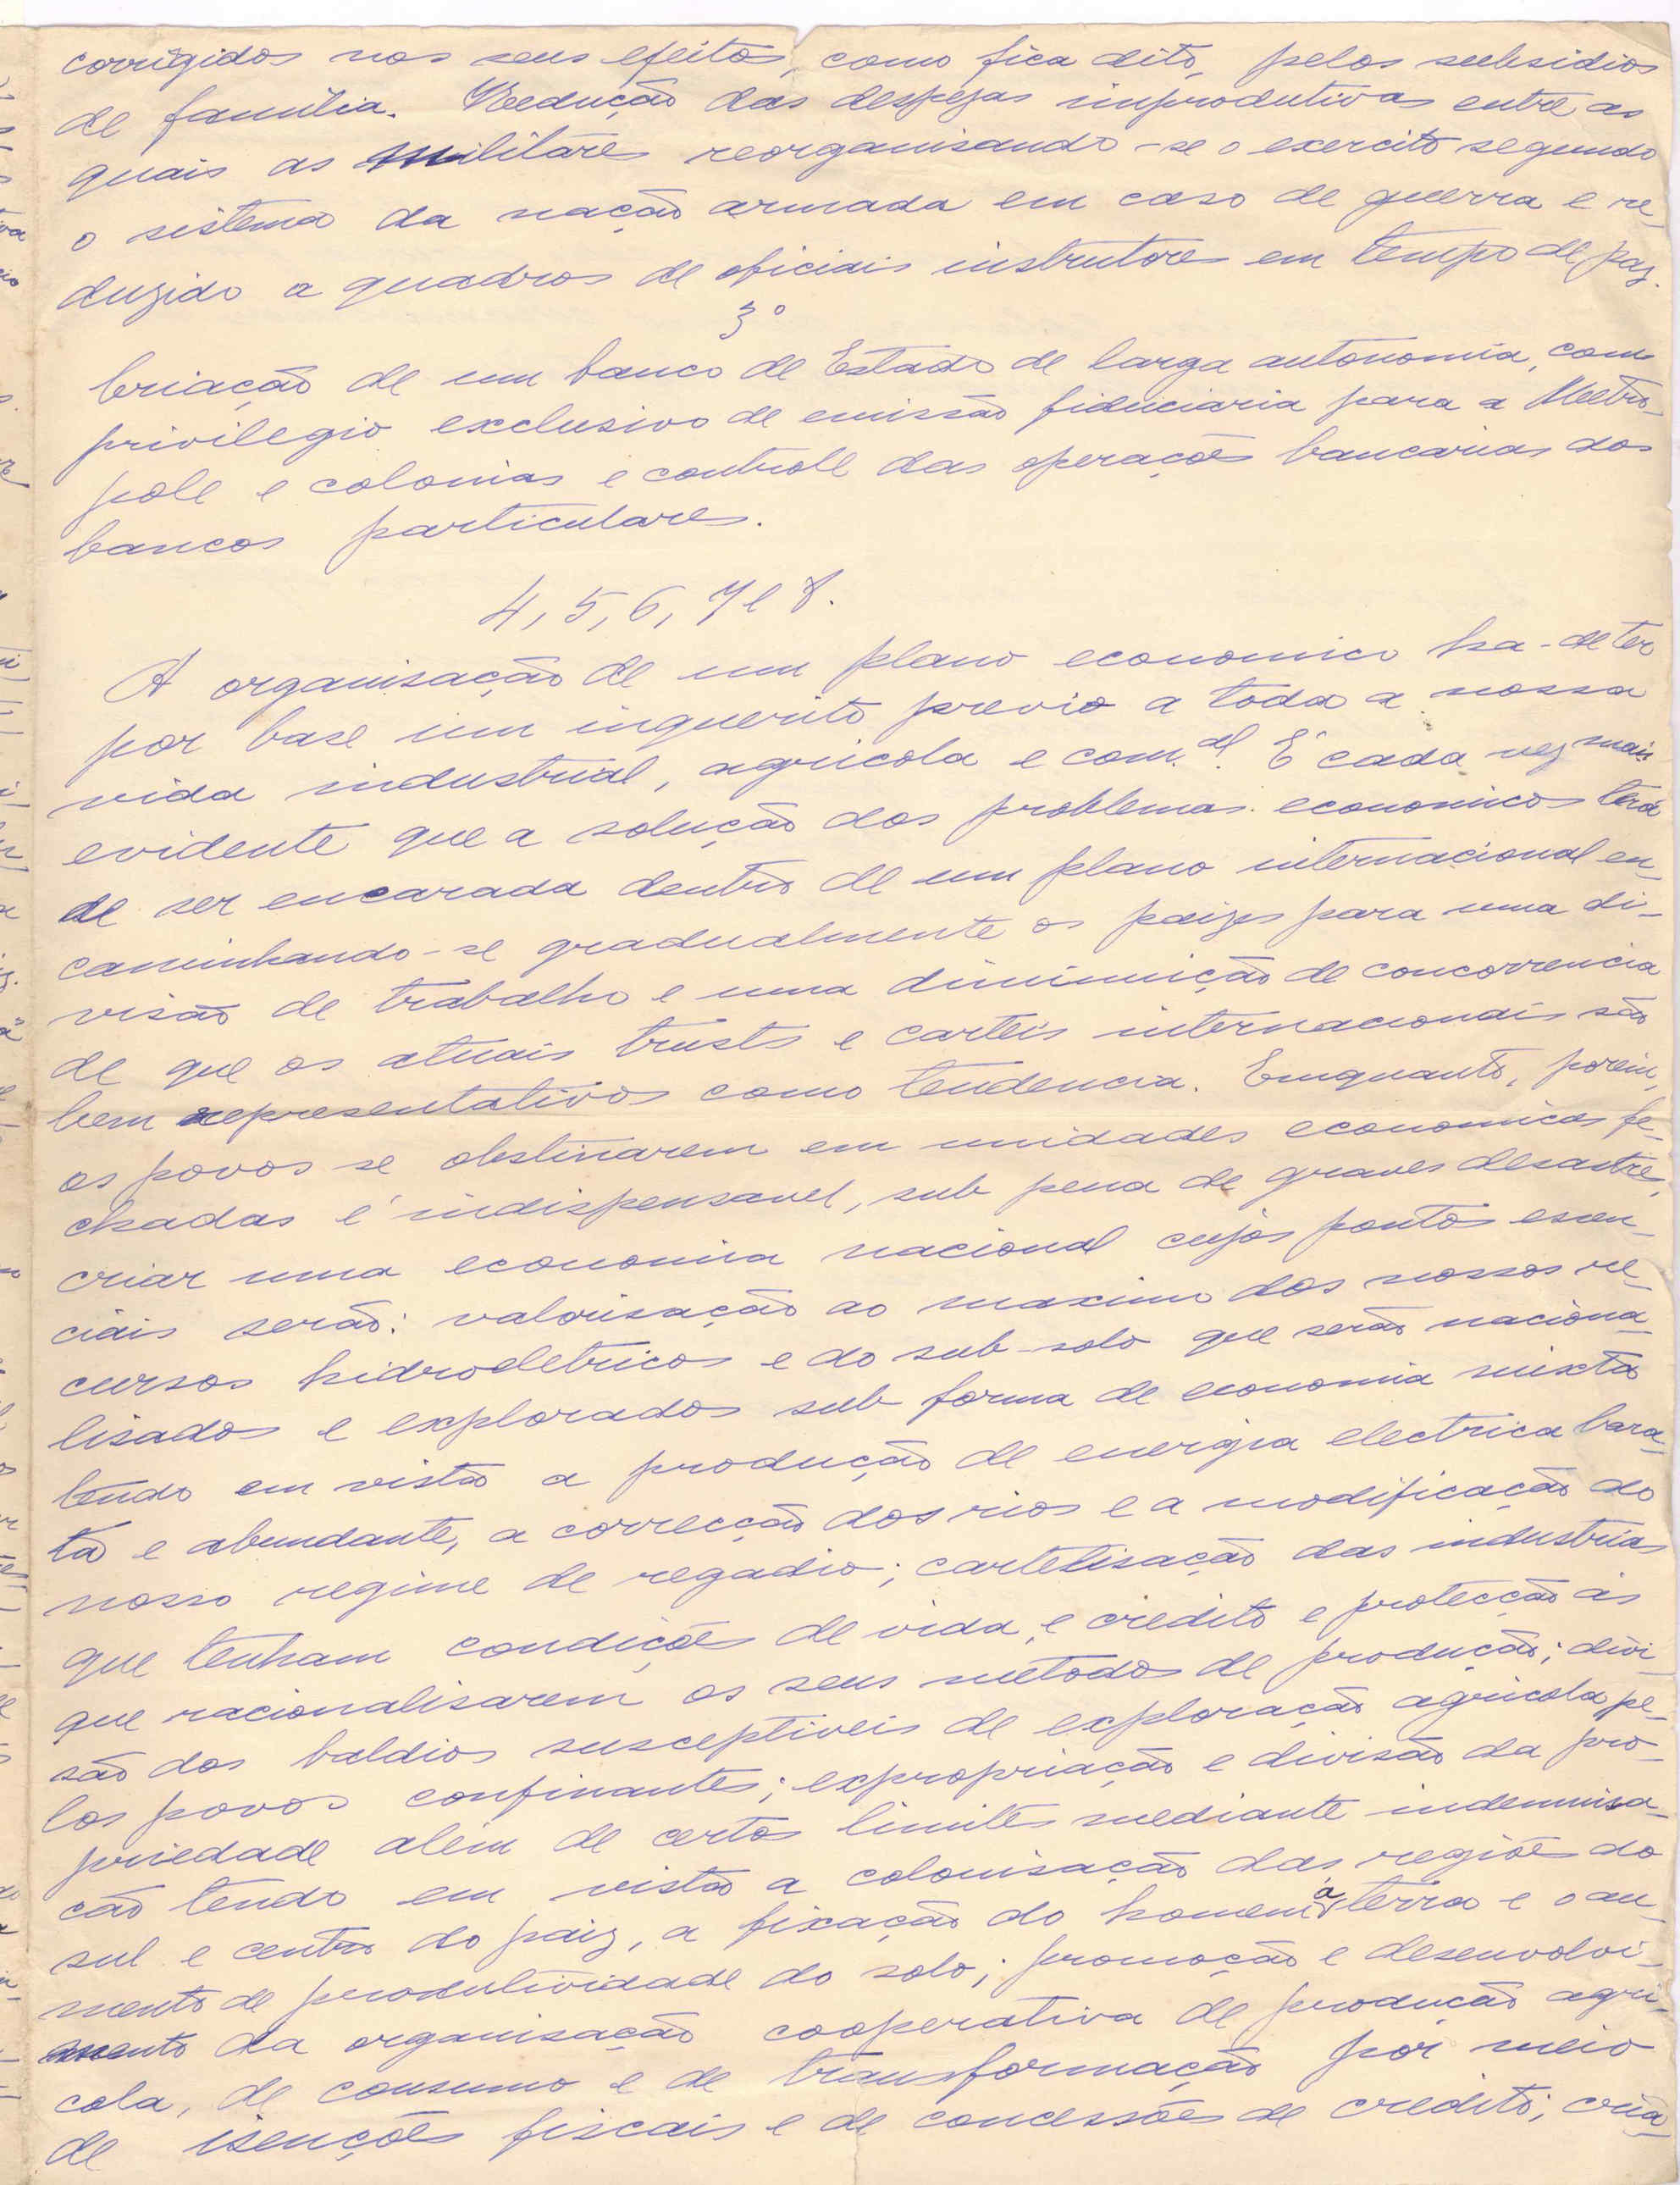 corrigidos nos seus efeitos, como fica dito, pelos subsidios
de familia. Reedução das despezas improdutivas entre as
quais as militares reorganisando-se o exercito segundo
o sistema da nação armada em caso de guerra e re-
duzido a quadros de oficiais instrutores em tempo de paz.
3º
Criação de um banco de Estado de larga autonomia, com
privilegio exclusivo de emissão fiduciaria para a Metro-
pole e colonias e controle das operações bancarias dos
bancos particulares.
4, 5, 6, 7 e 8.
A organisação de um plano economico ha-de ter
por base um inquerito previo a toda a nossa
vida industrial, agricola e com.al. É cada vez mais
evidente que a solução dos problemas economicos terá
de ser encarada dentro de um plano internacional en-
caminhando-se gradualmente os paizes para uma di-
visão de trabalho e uma diminuição de concorrencia
de que os atuais trusts e carteis internacionais são
bem representativos como tendencia. Emquanto, porém,
os povos se obstinarem em unidades economicas fe-
chadas é indispensavel, sub pena de graves desastres,
criar uma economia nacional cujos pontos essen-
ciais serão: valorisação ao maximo dos nossos re-
cursos hidroeletricos e do sub-solo que serão naciona-
lisados e explorados sub forma de economia mixta
tendo em vista a produção de energia electrica bara-
ta e abundante, a correcção dos rios e a modificação do
nosso regime de regadio; cartelisação das industrias
que tenham condições de vida, e credito e protecção ás
que racionalisarem os seus metodos de produção; divi-
são dos baldios susceptiveis de exploração agricola pe-
los povos confinantes; expropriação e divisão da pro-
priedade além de certos limites mediante indemnisa-
ção tendo em vista a colonisação das regiões do
sul e centro do paiz, a fixação do homem á terra e o au-
mento de produtividade do solo; promoção e desenvolvi-
mento da organisação cooperativa de produção agri-
cola, de consumo e de transformação por meio
de isenções fiscais e de concessões de credito; cria-